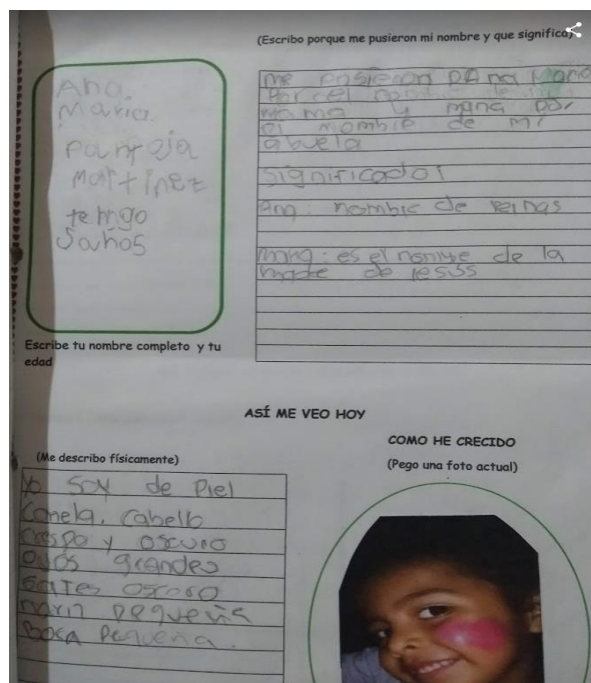 (Escribo porque me pusieron mi nombre y que significa)
Ana.
Maria
pantoja
Martinez
tengo
5 años
Escribe tu nombre completo y tu
edad
me pusieron Ana Maria
Por el
mama y por
el nombre de mi
abuela
significados
Ana: nombre de reinas
maria: es el nombre de la
madre de Jesus
ASÍ ME VEO HOY
(Me describo físicamente)
Yo soy de piel
canela, cabello
crespo y oscuro
grandes
oscoro
pequeña
Boca pequeña.
COMO HE CRECIDO
(Pego una foto actual)